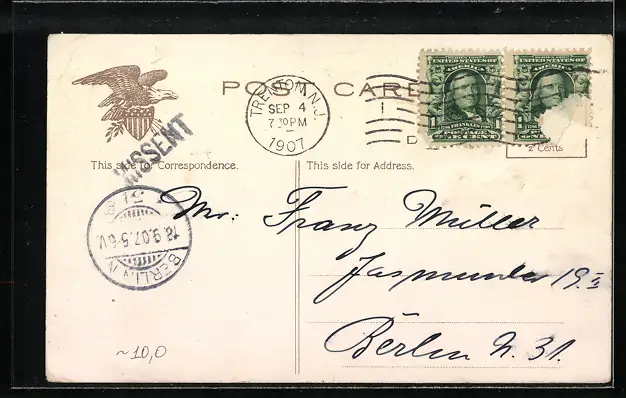 POST CARD
TRENTON, N.J.
SEP 4
7 30 PM
1907
UNITED STATES OF AMERICA
FRANKLIN
POSTAGE
ONE CENT
UNITED STATES OF AMERICA
2 Cents
MISSENT
This side for Correspondence.
This side for Address.
BERLIN N
18.9.07.5-6V.
31
Mr: Franz Müller
Jasmunder 19 II
Berlin N. 31.
~10,0